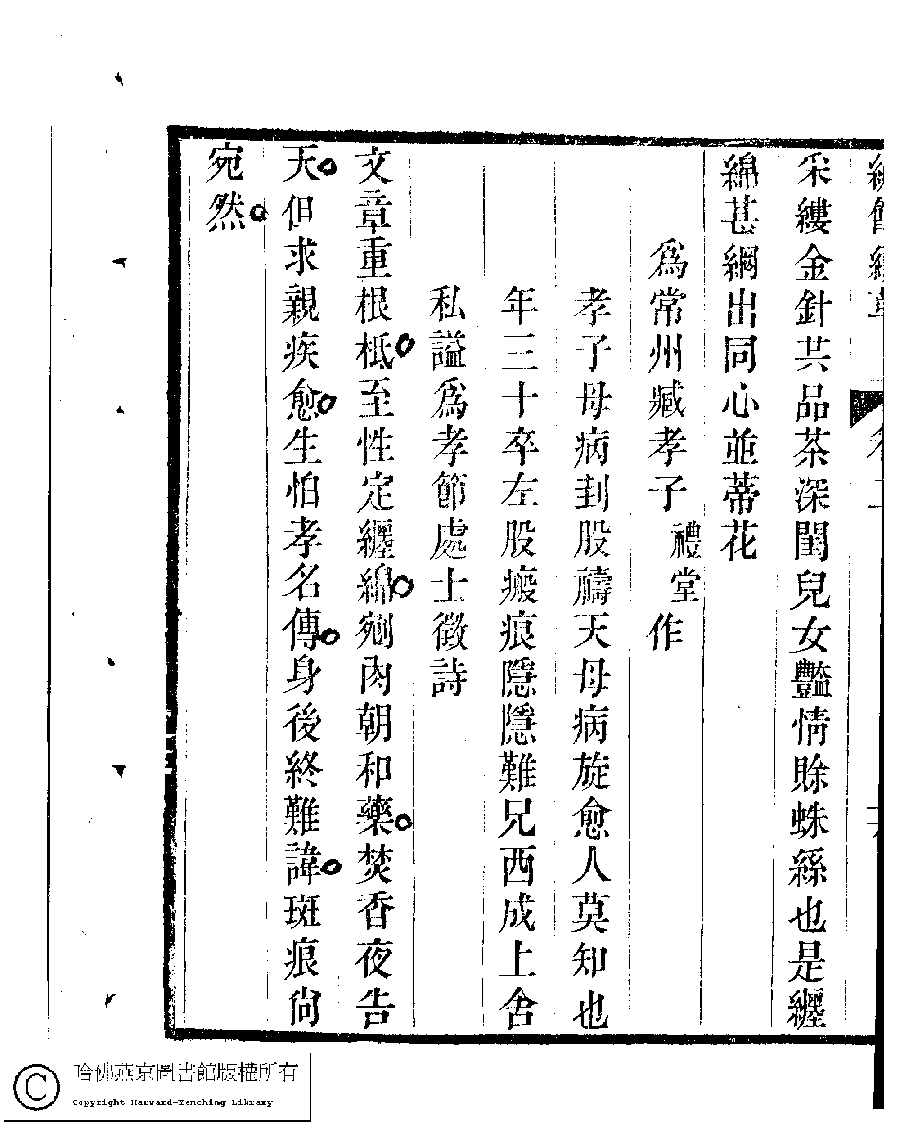 采縷金針共品茶深閨兒女豔情賖蛛絲也是纒
綿甚網出同心並蒂花
爲常州臧孝子禮堂作
孝子母病刲股禱天母病旋愈人莫知也
年三十卒左股瘢痕隱隱難兄西成上舍
私謚爲孝節處士徵詩
文章重根柢至性定纒綿剜肉朝和藥焚香夜告
天但求親疾愈生怕孝名傳身後終難諱斑痕尙
宛然
哈佛燕京圖書館版權所有
Copyright Harvard-Yenching Library